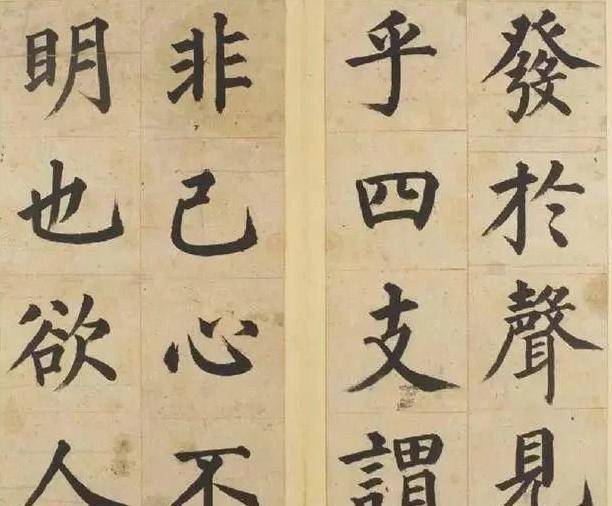 發於聲見
乎四支謂
非己心不
明也欲人